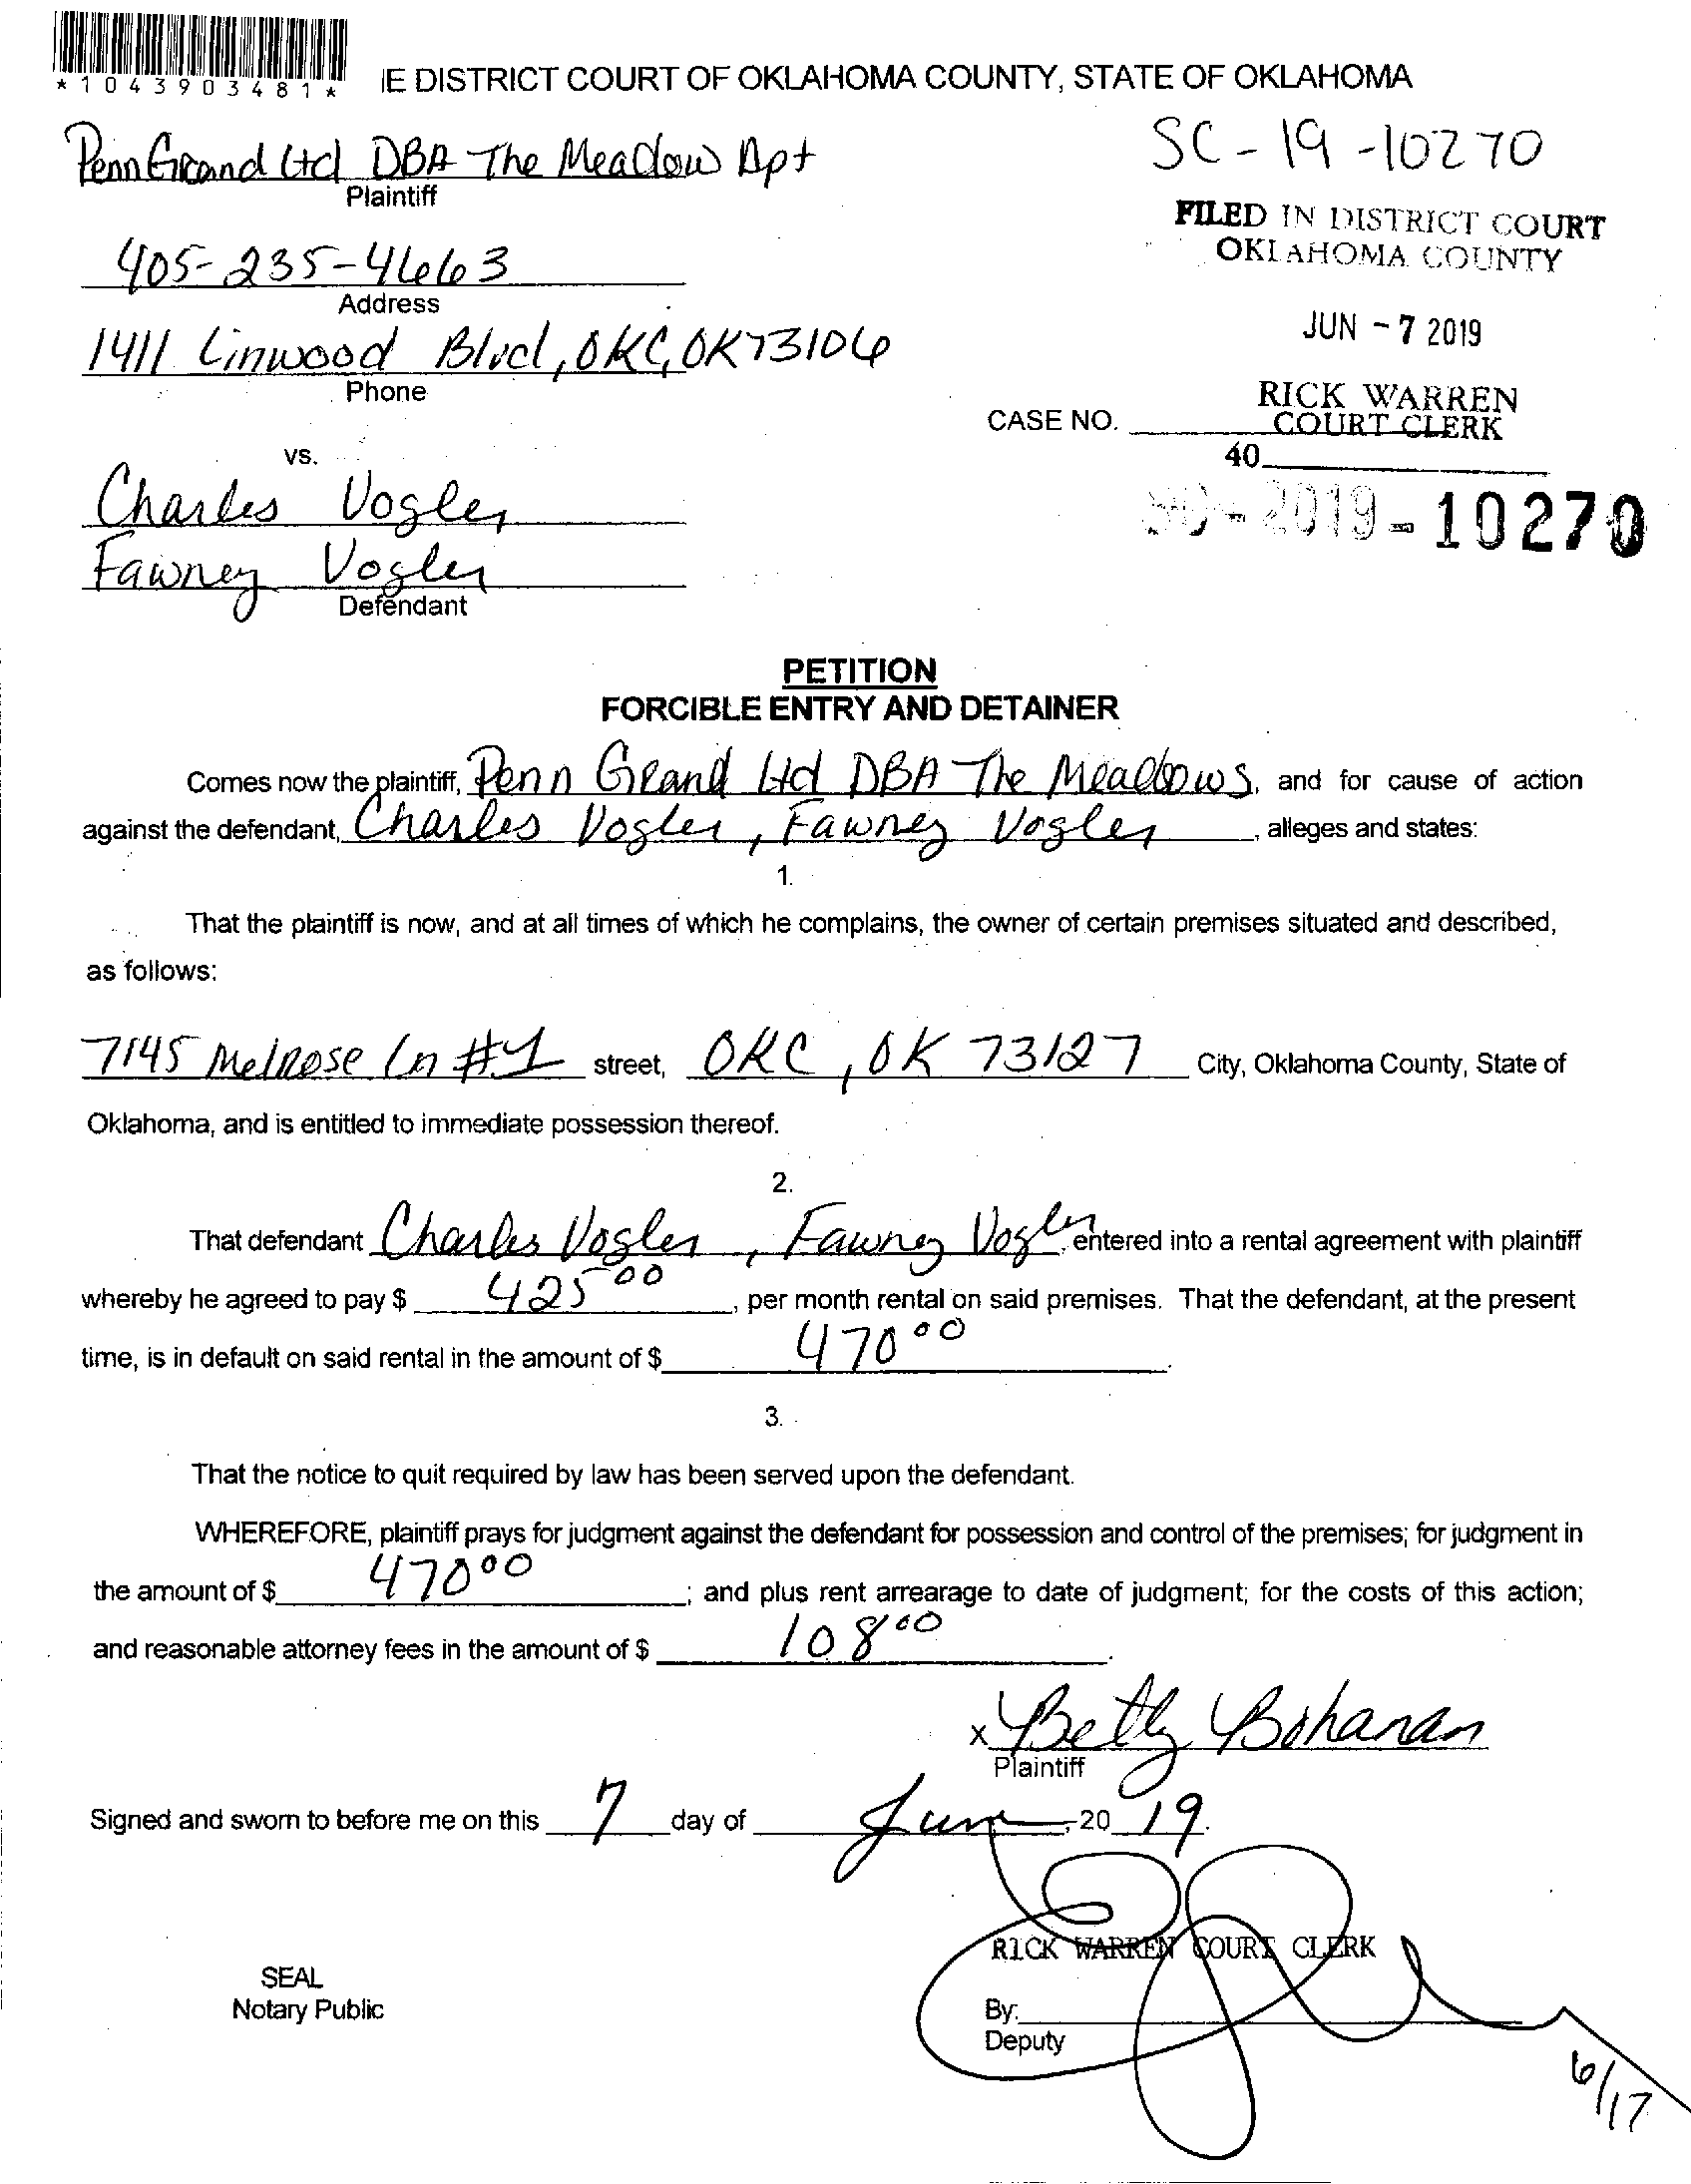 *1043903481*
IE DISTRICT COURT OF OKLAHOMA COUNTY, STATE OF OKLAHOMA
Penn Grand Ltd DBA The Meadow Apt
Plaintiff
SC-19-10270
FILED IN DISTRICT COURT
OKLAHOMA COUNTY
405-235-4663
Address
JUN -7 2019
1411 Linwood Blvd, OKC, OK 73106
Phone
RICK WARREN
COURT CLERK
CASE NO.
40
vs.
Charles Vogler
SC-2019-10270
Fawney Vogler
Defendant
PETITION
FORCIBLE ENTRY AND DETAINER
Comes now the plaintiff, Penn Grand Ltd DBA The Meadows, and for cause of action
against the defendant, Charles Vogler, Fawney Vogler, alleges and states:
1.
That the plaintiff is now, and at all times of which he complains, the owner of certain premises situated and described,
as follows:
7145 Melrose Ln #1 street, OKC, OK 73127 City, Oklahoma County, State of
Oklahoma, and is entitled to immediate possession thereof.
2.
That defendant Charles Vogler, Fawney Vogler, entered into a rental agreement with plaintiff
whereby he agreed to pay $ 425 00, per month rental on said premises. That the defendant, at the present
time, is in default on said rental in the amount of $ 470 00.
3.
That the notice to quit required by law has been served upon the defendant.
WHEREFORE, plaintiff prays for judgment against the defendant for possession and control of the premises; for judgment in
the amount of $ 470 00; and plus rent arrearage to date of judgment; for the costs of this action;
and reasonable attorney fees in the amount of $ 108 00.
x Betty Bohanan
Plaintiff
Signed and sworn to before me on this 7 day of June, 20 19.
RICK WARREN COURT CLERK
SEAL
Notary Public
By:
Deputy
6/17